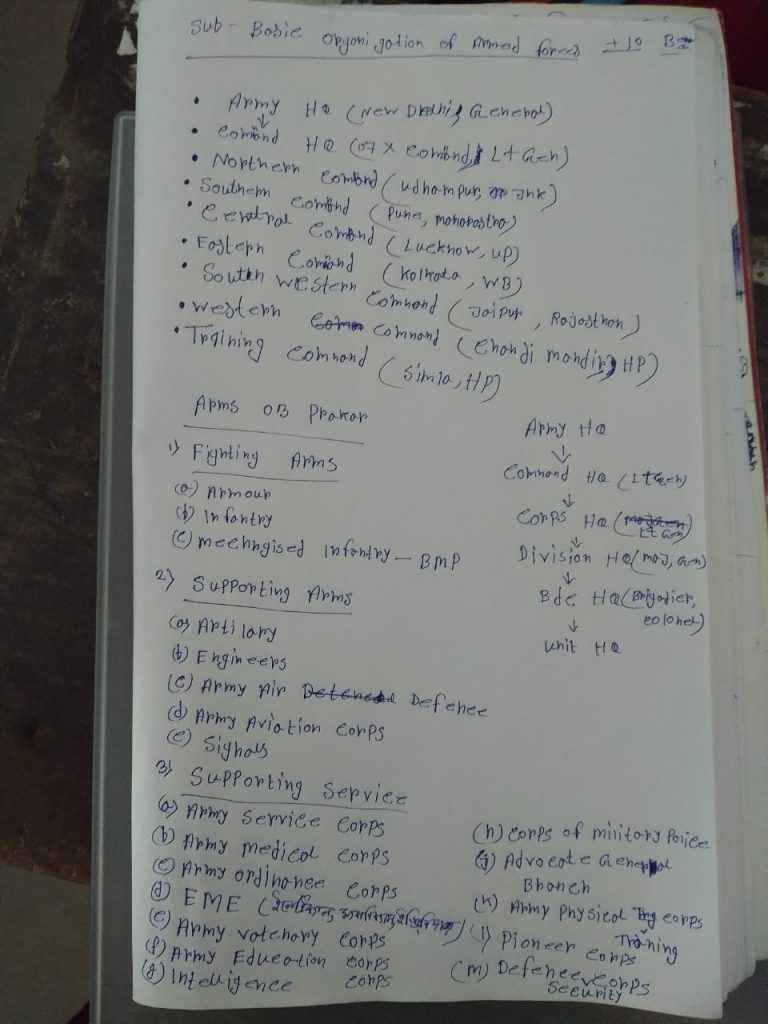 Sub - Basic Organigation of Armed forces + 10 B
• Army HQ (New Delhi, General)
↓
• Comand HQ (07 x Comand, Lt Gen)
• Northern Comand (Udhampur, Jnk)
• Southern Comand (Pune, Maharastha)
• Central Comand (Lucknow, UP)
• Eastern Comand (Kolkata, WB)
• South Western Command (Jaipur, Rajasthan)
• Western Command (Chandi mandir, HP)
• Training Command (Simla, HP)
Arms OB Prakar
1) Fighting Arms
(a) Armour
(b) Infantry
(c) Mechngised Infantry — BMP
2) Supporting Arms
(a) Artilary
(b) Engineers
(c) Army Air Defence
(d) Army Aviation Corps
(e) Signals
3) Supporting Service
(a) Army Service Corps
(b) Army Medical Corps
(c) Army Ordinance Corps
(d) EME
(e) Army Vatenary Corps
(f) Army Education Corps
(g) Intelligence Corps
Army HQ
↓
Command HQ (Lt Gen)
↓
Corps HQ (Lt Gen)
↓
Division HQ (Maj, Gen)
↓
Bde HQ (Brigadier,
Colonel)
↓
Unit HQ
(h) Corps of military Police
(j) Advocate General
Branch
(k) Army Physical Trg Corps
Training
(l) Pioneer Corps
(m) Defence Corps
Security